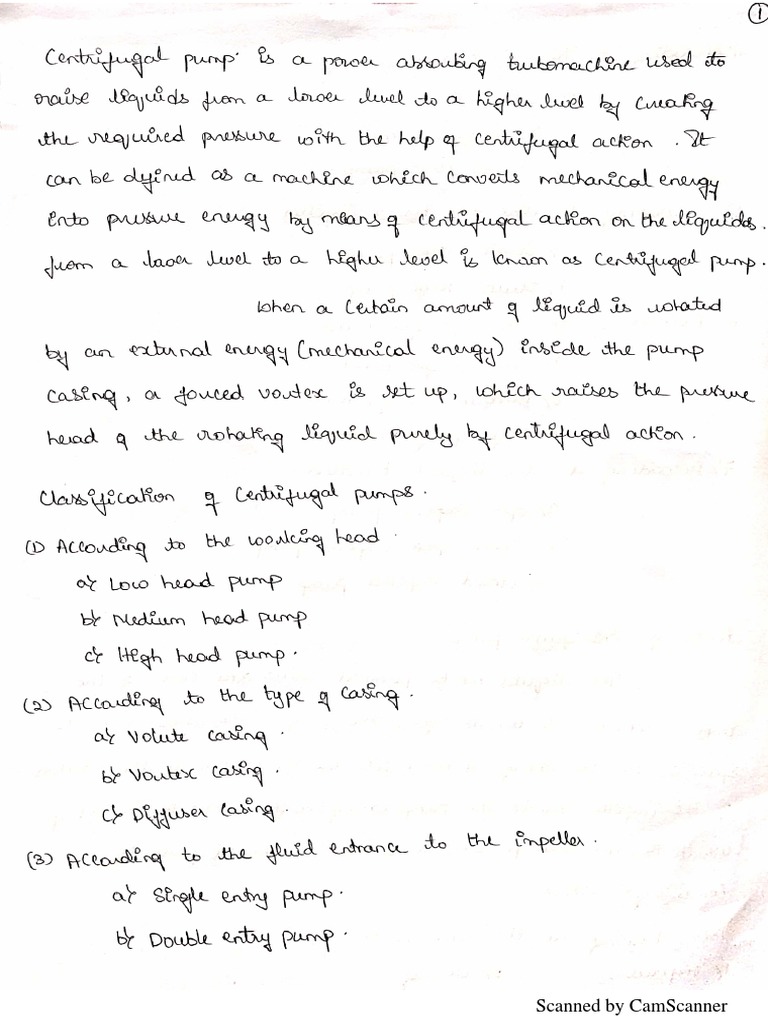 1
Centrifugal pump is a power absorbing turbomachine used to
raise liquids from a lower level to a higher level by creating
the required pressure with the help of centrifugal action. It
can be defined as a machine which converts mechanical energy
into pressure energy by means of centrifugal action on the liquids.
from a lower level to a higher level is known as centrifugal pump.
When a certain amount of liquid is rotated
by an external energy (mechanical energy) inside the pump
casing, a forced vortex is set up, which raises the pressure
head of the rotating liquid purely by centrifugal action.
Classification of Centrifugal pumps.
(1) According to the working head.
a) Low head pump
b) Medium head pump
c) High head pump.
(2) According to the type of casing.
a) Volute casing.
b) Vortex casing.
c) Diffuser casing.
(3) According to the fluid entrance to the impeller.
a) Single entry pump.
b) Double entry pump.
Scanned by CamScanner